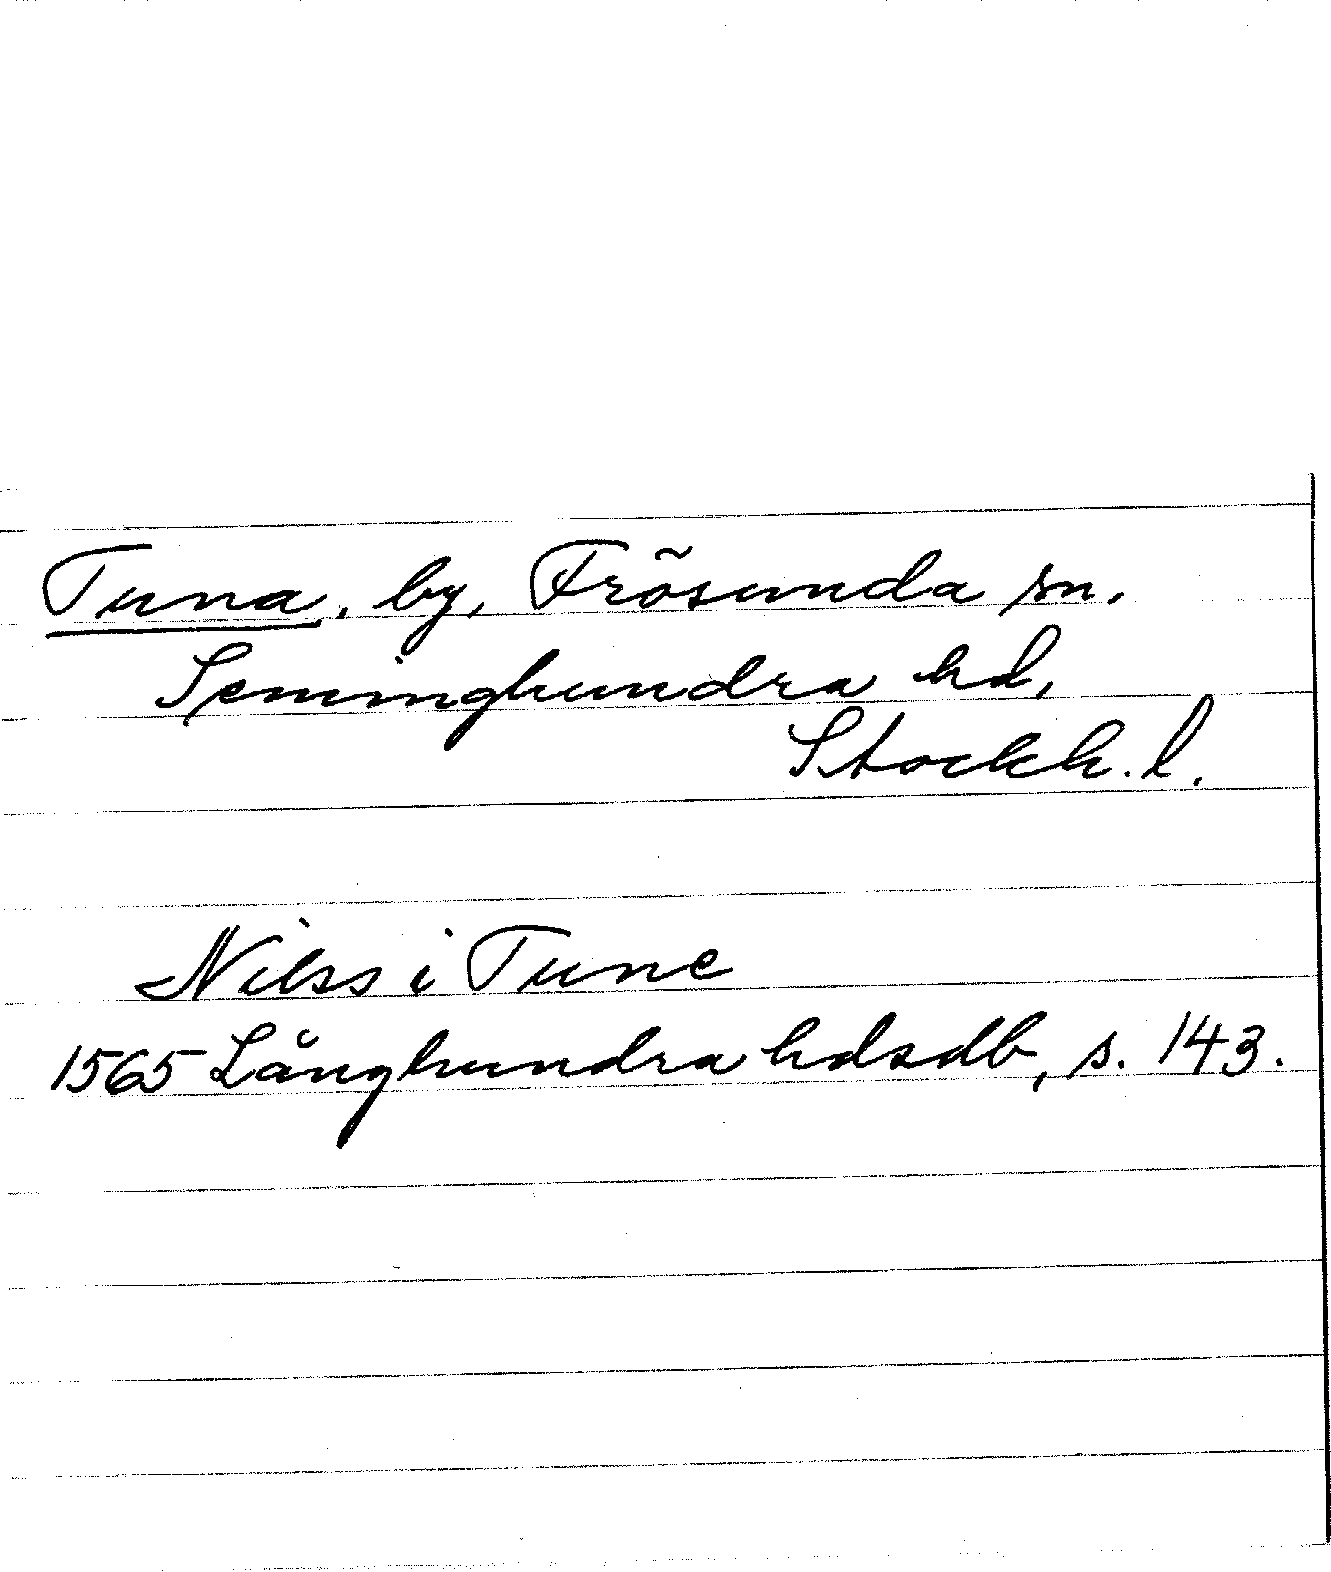 Tuna, by, Frösunda sn,
Seminghundra hd,
Stockh. l.
Nilss i Tune
1565 Långhundra hdsdb, s. 143.